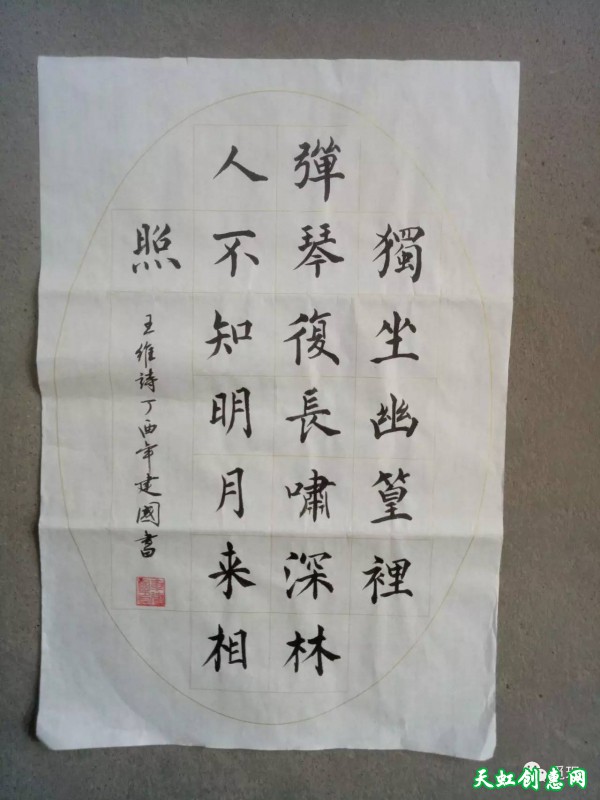 獨坐幽篁裡
彈琴復長嘯深林
人不知明月来相
照
王維詩丁酉年建國書
天虹创惠网